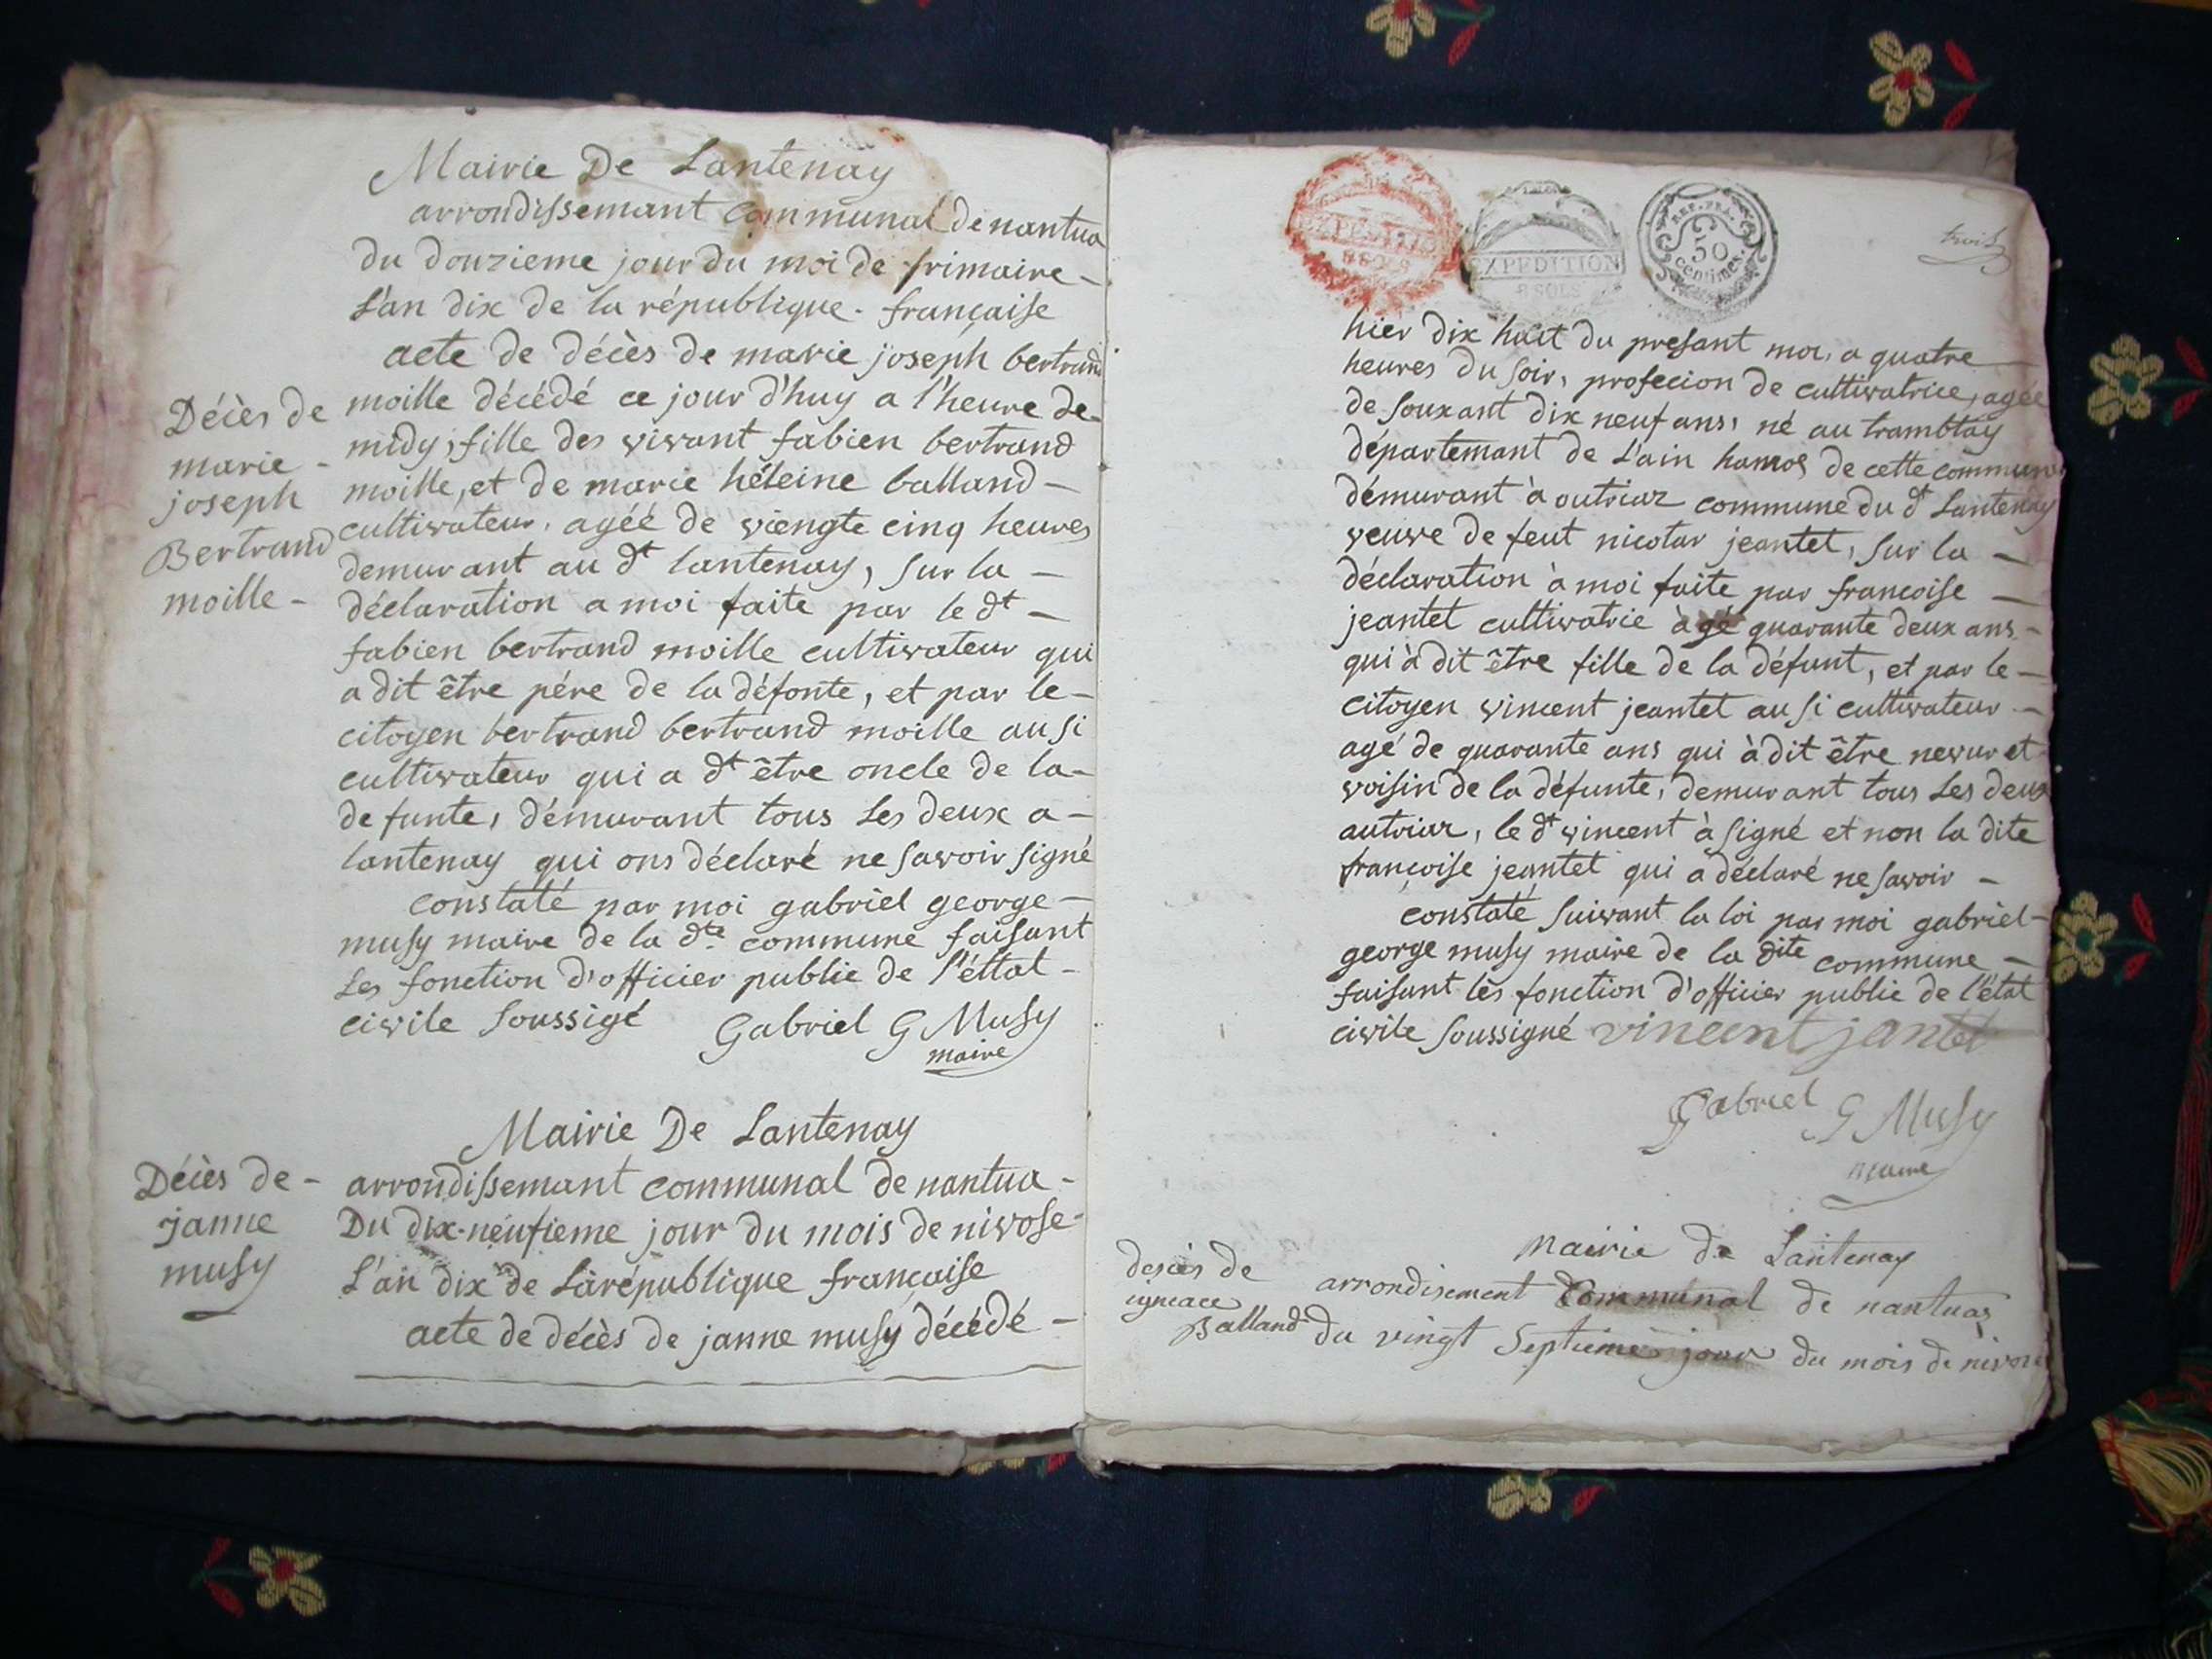 Mairie De Lantenay
arrondissemant communal de nantua
du douzieme jour du moi de frimaire
L'an dix de la république française
acte de décès de marie joseph bertrand
Décès de
marie
joseph
Bertrand
moille
moille décédé ce jour d'huy a l'heure de
midy, fille des vivant fabien bertrand
moille, et de marie héleine balland
cultivateur, agéé de viengte cinq heures
demurant au dt lantenay, sur la
déclaration a moi faite par le dt
fabien bertrand moille cultivateur qui
a dit être pére de la défonte, et par le
citoyen bertrand bertrand moille ausi
cultivateur qui a dt être oncle de la
defunte, démurant tous Les deux a
lantenay qui ons déclaré ne savoir signé
constaté par moi gabriel george
musy maire de la dte commune faisant
Les fonction d'officier public de l'éttat
civile soussigé Gabriel G Musy
maire
Mairie De Lantenay
Décès de
janne
musy
arrondissemant communal de nantua
Du dix-neufieme jour du mois de nivose
L'an dix de La république francaise
acte de décès de janne musy décédé
EXPEDITION
8 SOLS
EXPEDITION
8 SOLS
REP. FRA.
50
centimes
trois
hier dix huit du presant moi, a quatre
heures du soir, profecion de cultivatrice, agée
de souxant dix neuf ans, né au tramblay
départemant de L'ain hamos de cette commune
démurant à outriaz commune du dt Lantenay
veuve de feut nicolar jeantet, sur la
déclaration à moi faite par francoise
jeantet cultivatrie àgé quarante deux ans
qui à dit être fille de la défunt, et par le
citoyen vincent jeantet ausi cultivateur
agé de quarante ans qui à dit être nevur et
voisin de la défunte, demurant tous Les deux
autriaz, le dt vincent à signé et non la dite
françoise jeantet qui a déclaré ne savoir
constaté suivant la loi par moi gabriel
george musy maire de la dite commune
faisant lès fonction d'officier public de l'état
civile soussigné vincent jantet
Gabriel G Musy
maire
mairie de Lantenay
desces de
igneace
Balland
arrondisement Communal de nantuas
du vingt Septieme jour du mois de nivose